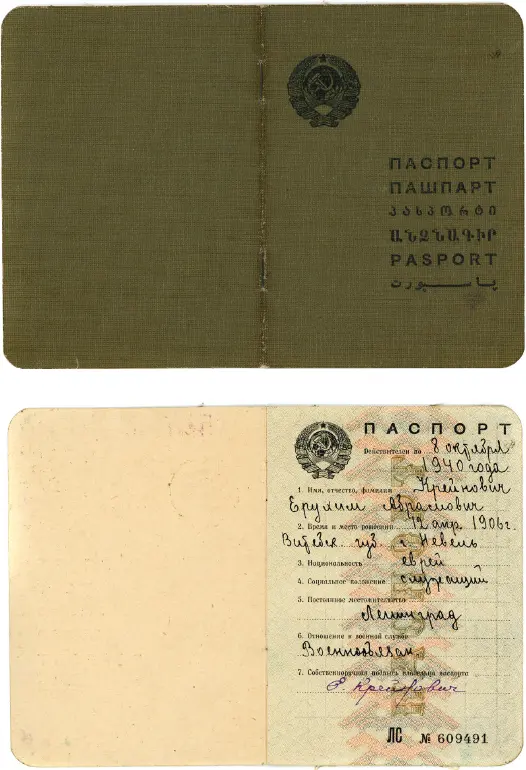 ПАСПОРТ
ПАШПАРТ
ᲞᲐᲡᲞᲝᲠᲢᲘ
ԱՆՁՆԱԳԻՐ
PASPORT
پاسپورت
ПАСПОРТ
Действителен по 8 октября
1940 года
1. Имя, отчество, фамилия Крейнович
Ерухим Абрамович
2. Время и место рождения 12 апр. 1906 г.
Витебск. губ. г. Невель
3. Национальность еврей
4. Социальное положение служащий
5. Постоянное местожительство
Ленинград
6. Отношение к военной службе
Военнообязан.
7. Собственноручная подпись владельца паспорта
Е. Крейнович
ЛС № 609491